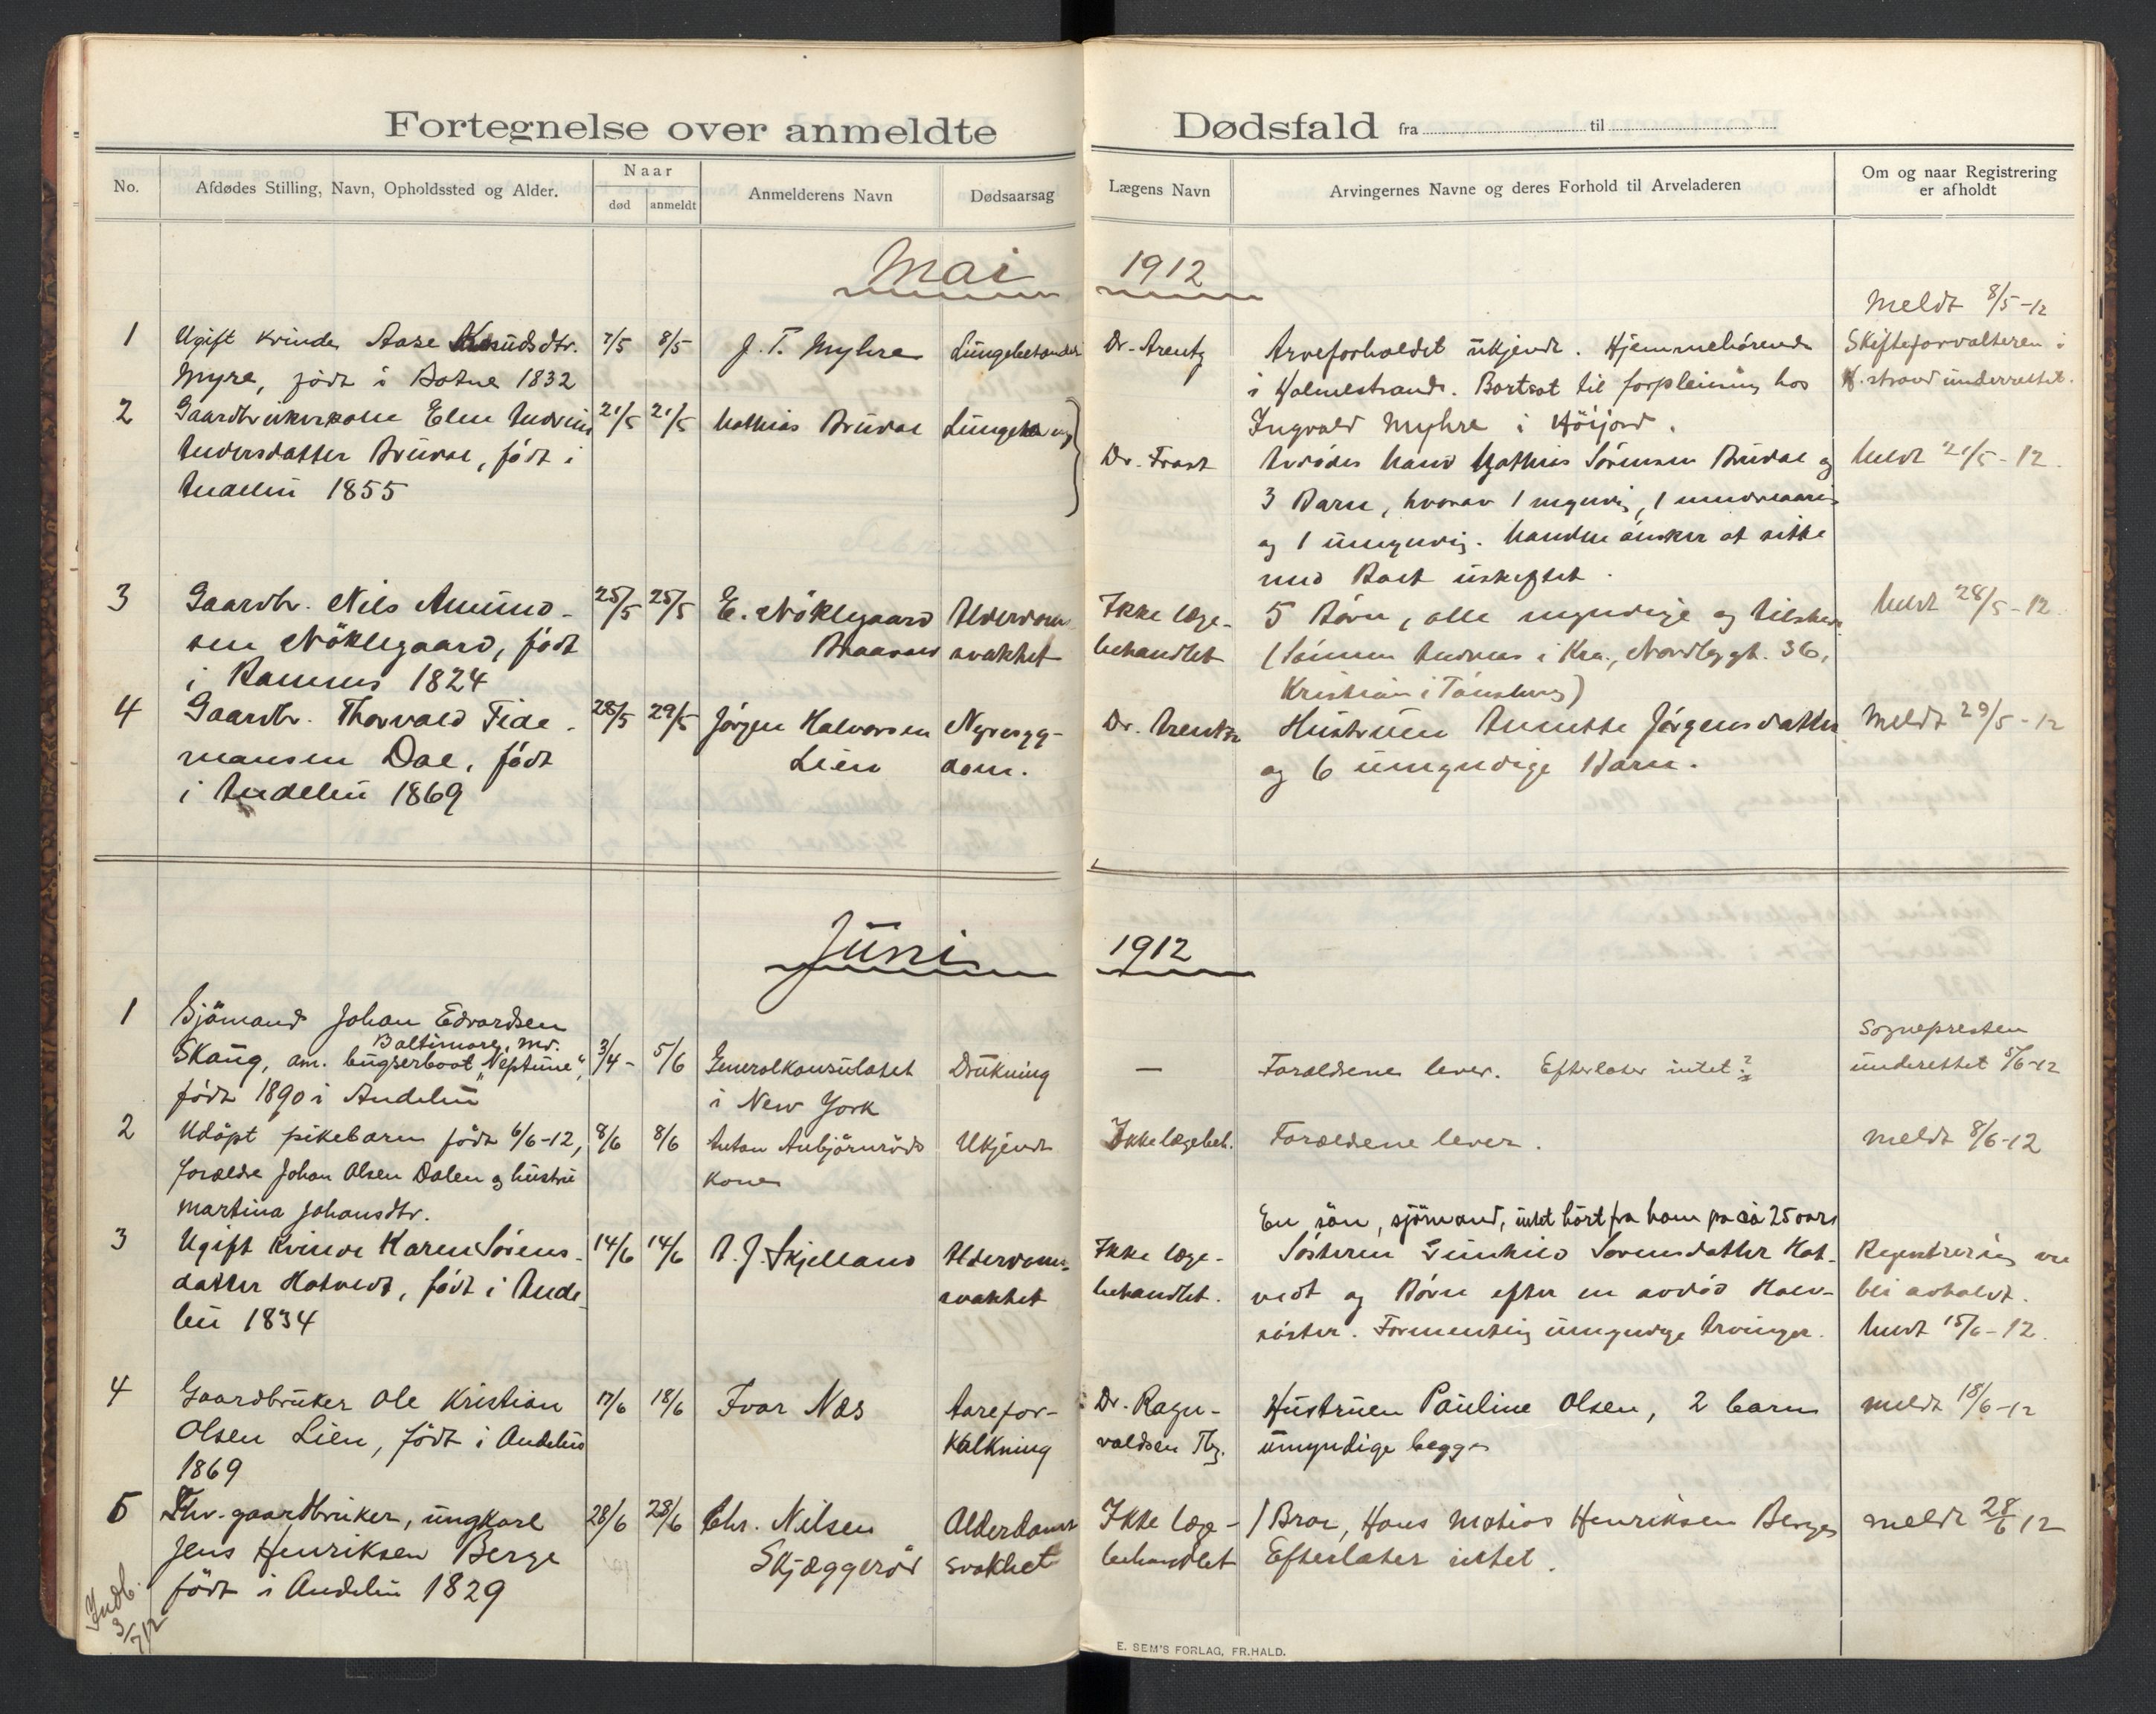 Fortegnelse over anmeldte Dødsfald fra til
No.
Afdødes Stilling, Navn, Opholdssted og Alder.
Naar
død
anmeldt
Anmelderens Navn
Dødsaarsag
Lægens Navn
Arvingernes Navne og deres Forhold til Arveladeren
Om og naar Registrering
er afholdt
Mai 1912
1
Ugift kvinde Aase Knudsdtr.
Myre, født i Botne 1832
7/5
8/5
J. T. Myhre
Lungebetændel
Dr. Arentz
Arveforholdet ukjendt. Hjemmehørende
i Holmestrand. Bortsat til forpleining hos
Ingvald Myhre i Höijord.
Meldt 8/5-12
Skifteforvalteren i
H.strand underrettet.
2
Gaardbrukerkone Elen
Andersdatter Bruval, født i
Andebu 1855
21/5
21/5
Mathias Bruval
Dr. Frost
Avdødes Mand Mathias Sørensen Bruval og
3 Barn, hvorav 1 myndig, 1 mindreaarig
og 1 umyndig. Manden ønsker at sitte
med Boet uskiftet.
Meldt 21/5-12.
3
Gaardbr. Nils Amund-
sen Nöklegaard, født
i Ramnes 1824
25/5
25/5
E. Nöklegaard
Alderdoms
svakhet
Ikke læge-
behandlet
5 Børn, alle myndige og tilstede
(Sønnen Andreas i Kra., Nordbygt. 36,
Kristian i Tønsberg)
Meldt 28/5-12.
4
Gaardbr. Thorvald Tide-
mansen Dal, født
i Andebu 1869
28/5
29/5
Jørgen Halvorsen
Lien
Nyresyg-
dom.
Dr. Arentz
Hustruen Annette Jørgensdatter
og 6 umyndige Barn.
Meldt 29/5-12
Juni 1912
1
Sjömand Johan Edvardsen
Baltimore, Md.
Skaug, am. bugserboot "Neptune",
født 1890 i Andebu
3/4-
5/6
Generalkonsulatet
i New York
Drukning
—
Foraeldrene lever. Efterlater intet?
Sognepresten
underettet 5/6-12
2
Udöpt pikebarn født 6/6-12,
foraeldre Johan Olsen Dalen og hustru
Martina Johansdtr.
8/6
8/6
Anton Anbjörnröds
Kone
Ukjendt
Ikke lægebeh.
Foraeldrene lever.
Meldt 8/6-12
3
Ugift Kvinde Karen Sørens-
datter Hotvedt, født i Ande-
bu 1834
14/6
14/6
A. J. Skjelland
Alderdoms-
svakhet
Ikke læge-
behandlet.
En sön, sjömand, intet hört fra ham pa ca 25 aar
Søsteren Gunhild Sørensdatter Hot-
vedt og Børn efter en avdød Halv-
søster. Formentlig umyndige Arvinger.
Registrering
bli avholdt.
Meldt 15/6-12.
4
Gaardbruker Ole Kristian
Olsen Lien, født i Andebu
1869
17/6
18/6
Ivar Næs
Aarefor-
kalkning
Dr. Ragn-
valdsen Tbg.
Hustruen Pauline Olsen, 2 barn
umyndige begge
Meldt 18/6-12
5
Fhv. gaardbruker, ungkarl
Jens Henriksen Berge
født i Andebu 1829
28/6
28/6
Chr. Nilsen
Skjæggerød
Alderdoms
svakhet
Ikke læge-
behandlet
1 Bror, Hans Mathias Henriksen Berge
Efterlater intet.
Meldt 28/6 12
Indb.
3/7 12
E. SEM'S FORLAG, FR.HALD.